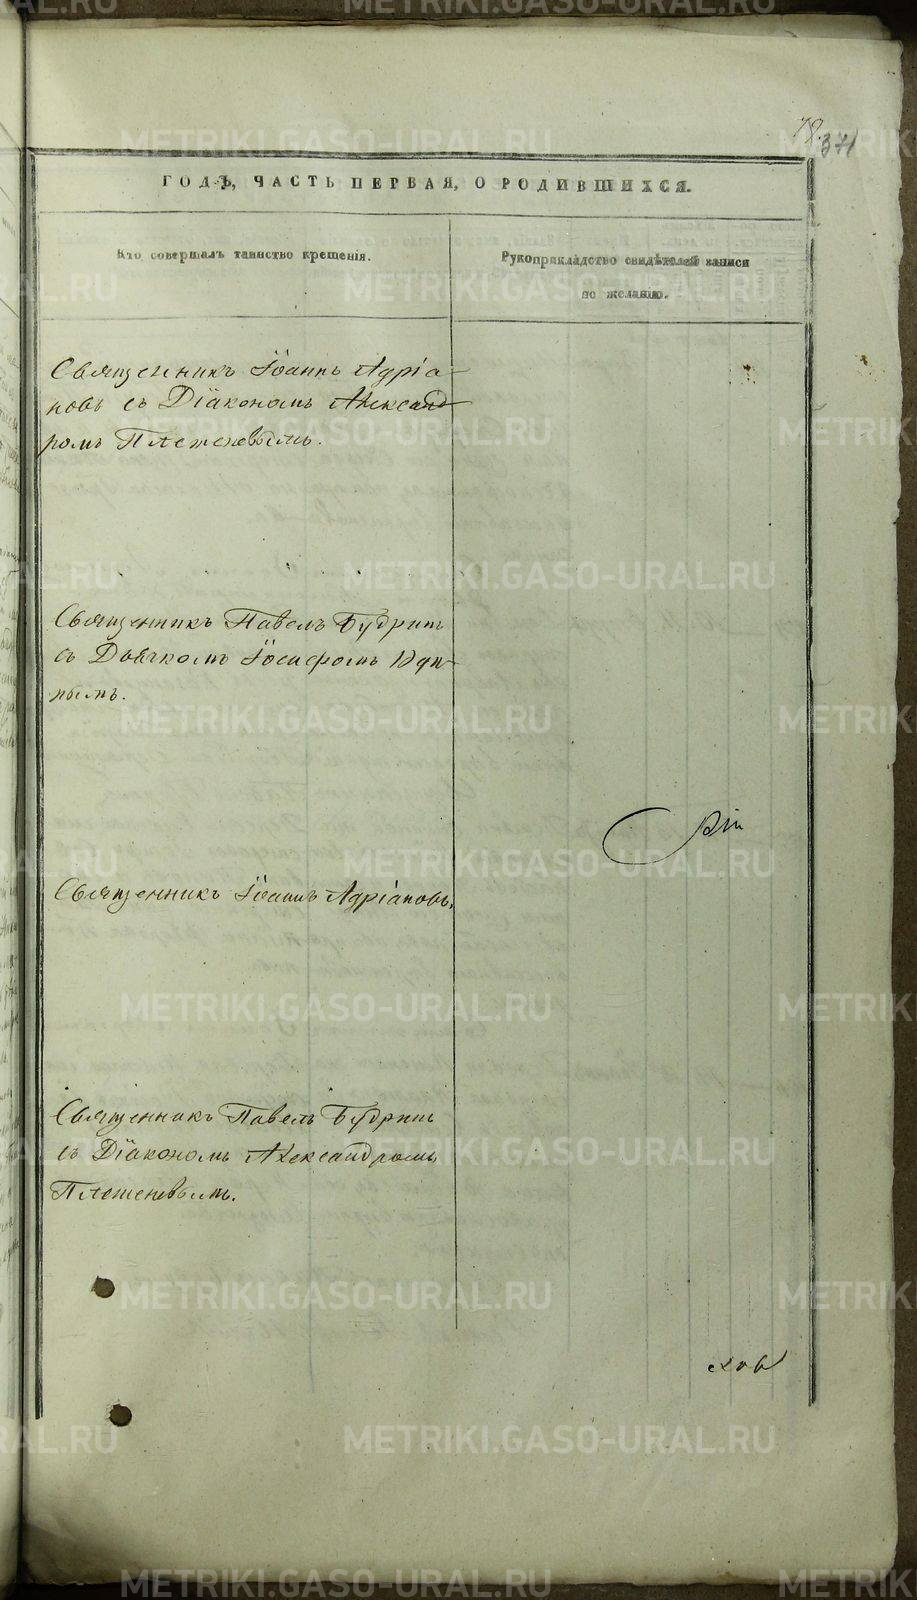 79.
371
ГОДЪ, ЧАСТЬ ПЕРВАЯ, О РОДИВШИХСЯ.
Кто совершалъ таинство крещенія.
Рукоприкладство свидѣтелей записи
по желанію.
Священникъ Іоаннъ Адріа-
новъ съ Діакономъ Александ
ромъ Плетеневымъ.
Священникъ Павелъ Будринъ
съ Дьячкомъ Іосифомъ
нымъ.
Священникъ Іоаннъ Адріановъ.
Священникъ Павелъ Будринъ
съ Діакономъ Александромъ
Плетеневымъ.
METRIKI.GASO-URAL.RU